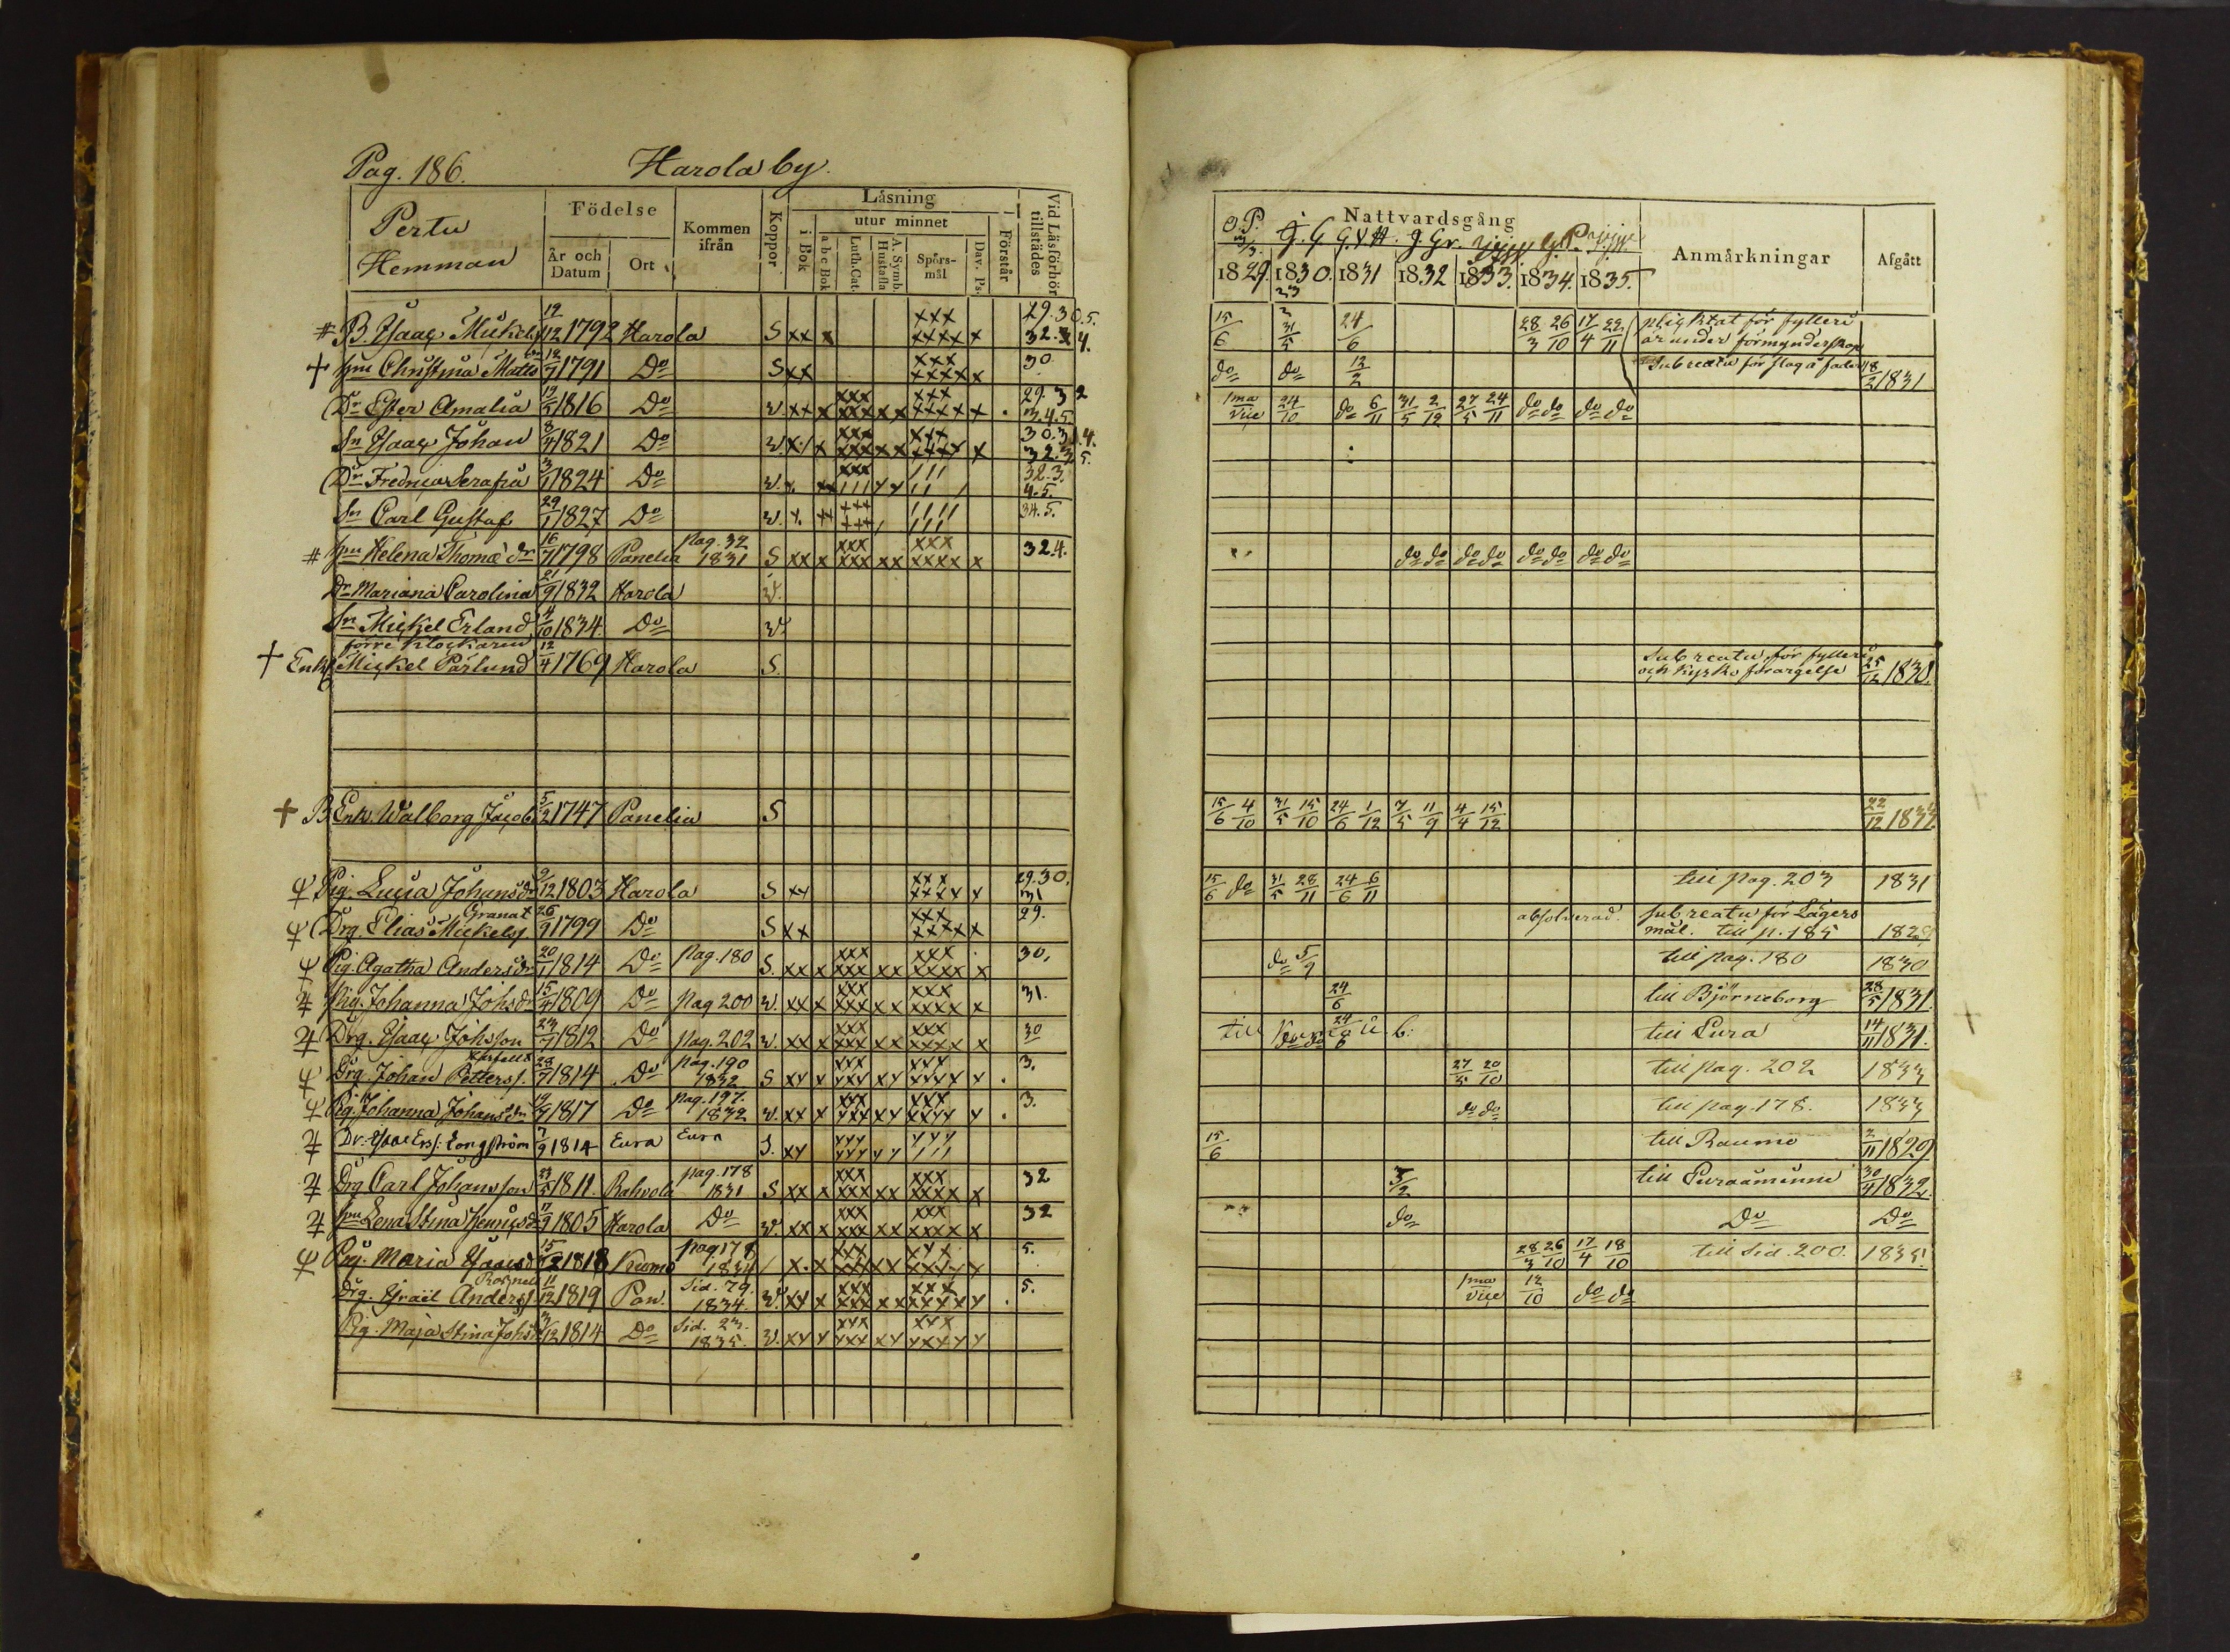 Pag. 186. Harola by.
Pertu
Hemman
Födelse
År och Datum
Ort
Kommen ifrån
Koppor
Läsning
i Bok
utur minnet
abc Bok
Luth. Cat.
A. Symb. Hustafla
Spörsmål
Dav. Ps.
Förstår
Vid Läsförhör tillstädes
# B. Isaac Mickels 19/12 1792 Harola S xx x xxx xxxx x 29.30.5. 32.3.4.
+ Hu Christina Matts 12/7 1791 Do S xx xxx xxxxx 30.
Dr Ester Amalia 19/5 1816 Do v. xx x xxx xxx xx xxx xxxx x . 29.32 3.4.5.
Sn Isaac Johan 8/4 1821 Do v. x/ x xxx xxx xx xxx xxxx x 30.31.4. 32.3.5.
Dr Fredrica Serafia 3/1 1824 Do v. x. xx xxx 32.3. 4.5.
Sn Carl Gustaf 29/1 1827 Do v. x. xx xxx xxx 34.5.
# Hu Helena Thomæ dr 16/7 1798 Panelia pag. 32 1831 S xx x xxx xxx xx xxx xxxx x 32.4.
Dr Mariana Carolina 21/9 1832 Harola v.
Sn Mickel Erland 4/10 1834. Do v.
förre Klockaren
+ Enkl Mickel Pärlund 12/4 1769 Harola S.
+ B. Enk. Walborg Jacob 5/2 1747 Panelia S
Pig. Lucia Johansdr 9/12 1803 Harola S xx xxx xxxx x 29.30. 31
Granat
Drg. Elias Mickelss. 26/9 1799 Do S xx xxx xxxxx 29.
Pig. Agatha Andersdr 20/1 1814 Do pag. 180 S. xx x xxx xxx xx xxx xxxx x 30.
Pig. Johanna Johsdr 15/4 1809 Do pag 200 v. xx x xxx xxx xx xxx xxxx x 31.
Drg. Isaac Johsson 23/7 1812 Do pag. 202 v. xx x xxx xxx xx xxx xxxx x 30
Drg. Johan Petterss. 28/7 1814 Do pag. 190 1832 S xx x xxx xxx xx xxx xxxx x . 3.
Pig. Johanna Johansdr 1817 Do pag. 197. 1832 v. xx x xxx xxx xx xxx xxxx x . 3.
Dr: Isaac Ers: Longström 7/9 1814 Eura Eura S. xx
Drg Carl Johansson 23/5 1811. Rahvola pag. 178 1831 S xx x xxx xxx xx xxx xxxx x 32
Hu Lena Stina Henricsd 11/9 1805 Harola Do v. xx x xxx xxx xx xxx xxxx x 32
Pig. Maria Isacsd. 15/12 1818 Kumo pag. 178 1834 / x. x xxx xxx xx xxx xxxx x 5.
Rosnell
Drg. Israel Anderss. 11/12 1819 Pan. Sid. 79. 1834. v. xx x xxx xxx xx xxx xxxx x . 5.
Pig. Maja Stina Johsd 3/12 1814 Do Sid. 23. 1835. v. xx x xxx xxx xx xxx xxxx x
Nattvardsgång
Anmärkningar
Afgått
1829. 1830. 1831 1832 1833. 1834. 1835.
15/6 31/5 24/6 28/3 26/10 17/4 22/11 pligktat för fylleri
är under förmynderskap
do do 13/2 Sub reatu för slag å fader 18/2 1831
1ma vice 24/10 do 6/11 31/5 2/12 27/5 24/11 do do do do
do do do do do do do do
Sub reatu för fylleri
och kyrko förargelse 25/12 1830.
15/6 4/10 31/5 15/10 24/6 1/12 7/5 11/9 4/4 15/12 22/12 1834.
15/6 do 31/5 28/11 24/6 6/11 till pag. 203 1831
absolverad. sub reatu för Lägers
mål. till p. 185 1829
do 5/9 till pag. 180 1830
24/6 till Björneborg 28/5 1831.
24/6 till Eura 14/11 1831.
27/5 20/10 till pag. 202 1833
do do till pag. 178. 1833
15/6 till Raumo 2/11 1829
3/2 till Euraåminne 30/4 1832.
do Do Do
28/3 26/10 17/4 18/10 till Sid. 200. 1835.
1ma vice 12/10 do do